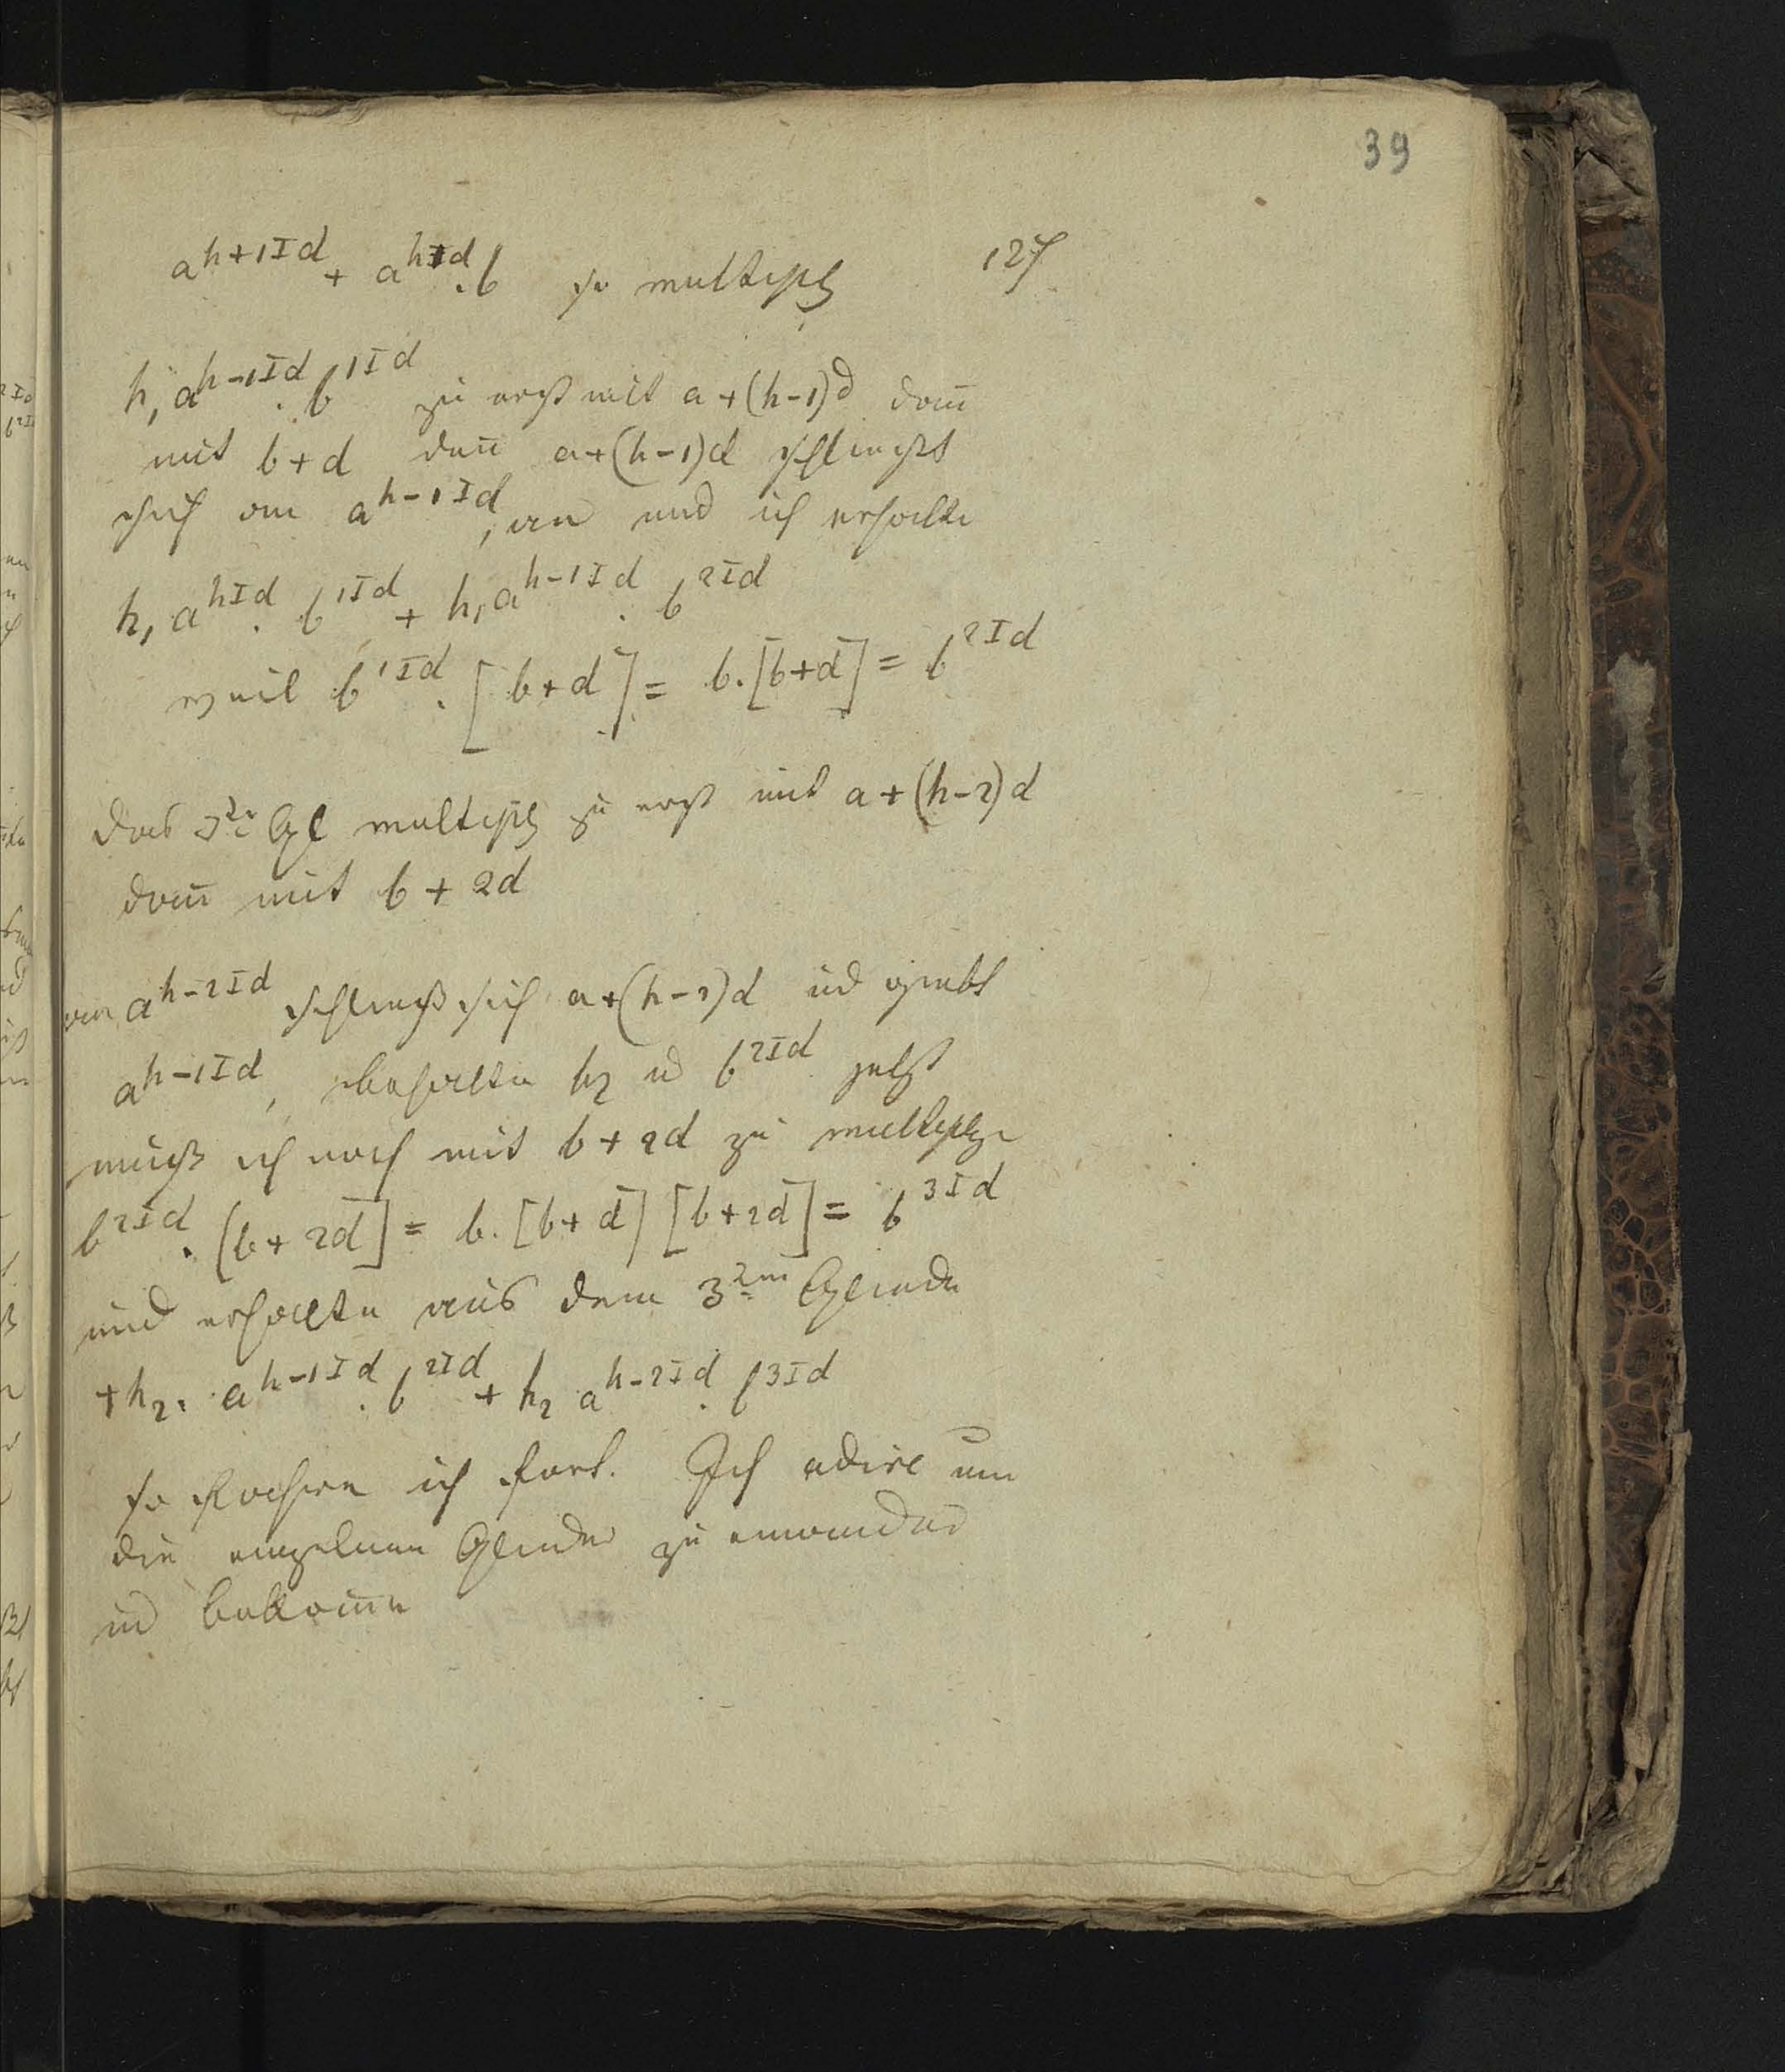 39
a^{h+1Id} + a^{hId}.b so multiplz 127
h₁ a^{h-1Id}.b^{1Id} zu erst mit a+(h-1)d dan̄
mit b+d den̄ a+(h-1)d schließt
sich an a^{h-1Id}, an und ich erhalte
h₁ a^{hId}.b^{1Id} + h₁ a^{h-1Id}.b^{2Id}
weil b^{1Id}.[b+d] = b.[b+d] = b^{2Id}
das 3te Gl multiplz zu erst mit a+(h-2)d
dan̄ mit b+2d
an a^{h-2Id} schließt sich a+(h-2)d ud giebt
a^{h-1Id}, h₂ u b^{2Id} jetzt
muß ich noch mit b+2d zu multiplz
b^{2Id}.[b+2d] = b.[b+d][b+2d] = b^{3Id}
und erhalte aus dem 3ten Gliede
+h₂. a^{h-1Id}.b^{2Id} + h₂ a^{h-2Id}.b^{3Id}
so ich fort. Ich adire nun
die einzelnen Glieder zu einander
ud bekom̄e